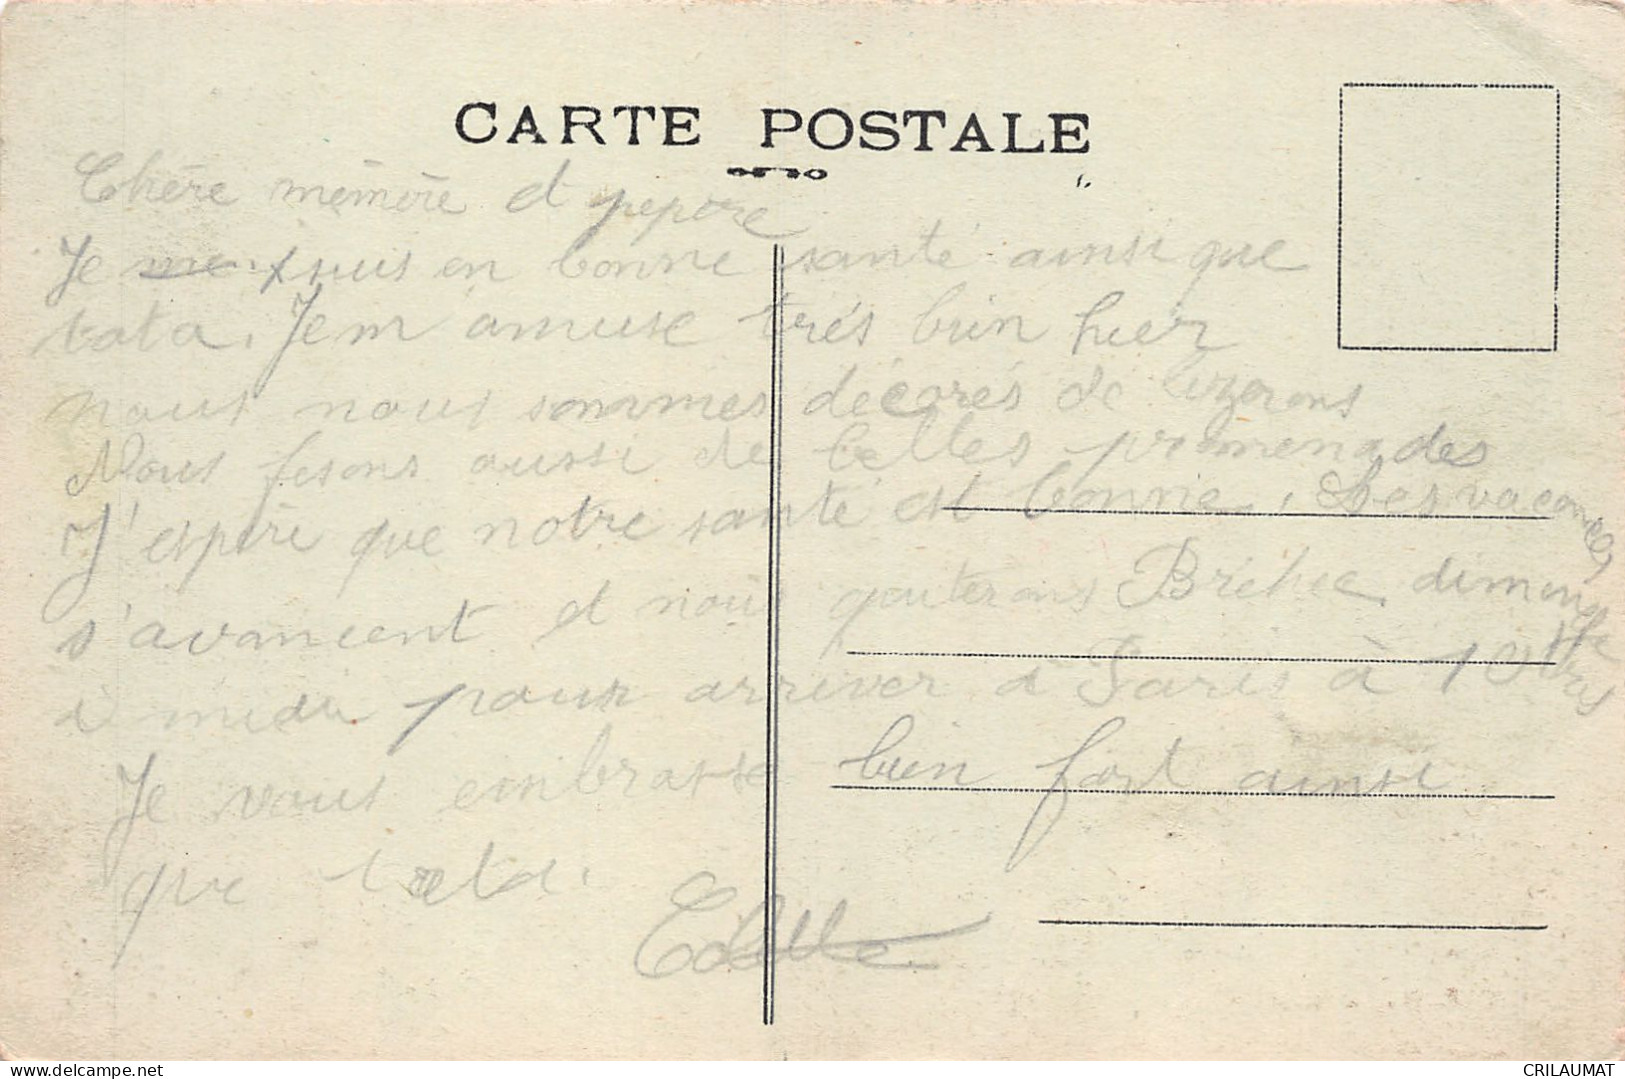 CARTE POSTALE
Chère mémère et pepère
Je me suis en bonne santé ainsi que
tata. Je m'amuse très bien hier
nous nous sommes décorés de
Nous fesons aussi de belles promenades
J'espère que notre santé est bonne. Les vacances
s'avancent et nous quiterons Bréhec dimanche
à midi pour arriver à Paris à 10
Je vous embrasse bien fort ainsi
que tata.
delcampe.net
CRILAUMAT